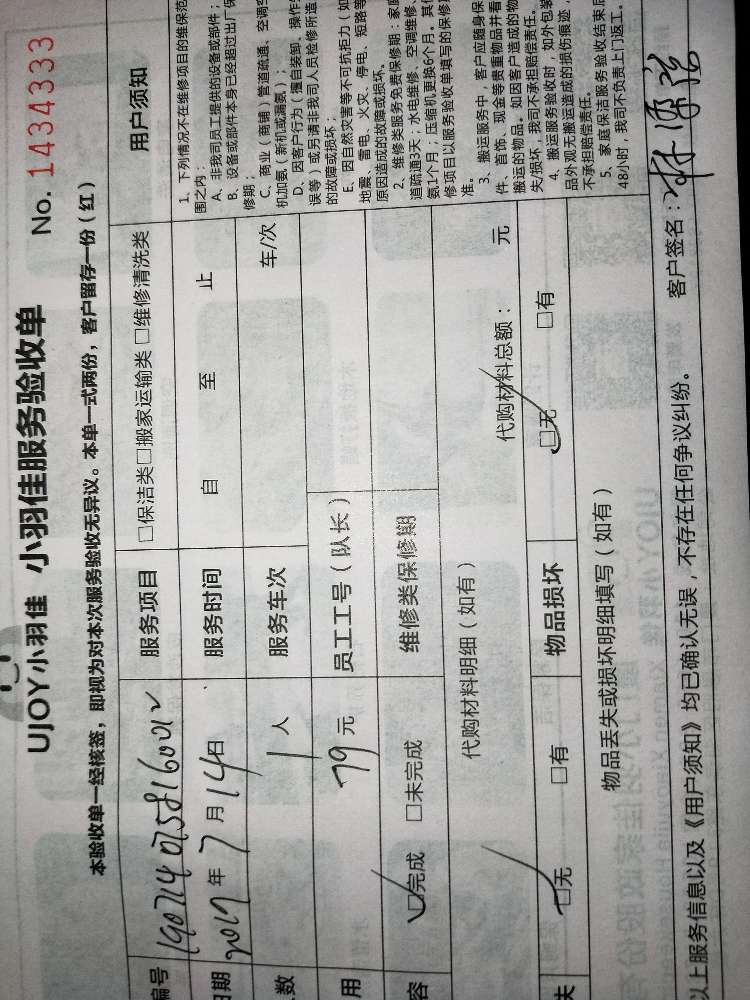 UJOY小羽佳 小羽佳服务验收单 No. 1434333
本验收单一经核签，即视为对本次服务验收无异议。本单一式两份，客户留存一份（红）
编号 1907140758160012 服务项目 □保洁类□搬家运输类 □维修清洗类
日期 2019年7月14日 服务时间 自 至 止
数 1人 服务车次 车/次
用 79元 员工工号（队长）
容 □完成 □未完成 维修类保修期
代购材料明细（如有） 代购材料总额： 元
失 □无 □有 物品损坏 □无 □有
物品丢失或损坏明细填写（如有）
用户须知
1、下列情况不在维修项目的维保范
围之内：
A、非我司员工提供的设备或部件；
B、设备或部件本身已经超过出厂保
修期；
C、商业（商铺）管道疏通、空调空
机加氨（新机或漏氨）；
D、因客户行为（擅自装卸、操作
误等）或另请非我司人员检修所造
的故障或损坏；
E、因自然灾害等不可抗拒力（如
地震、雷电、火灾、停电、短路等
原因造成的故障或损坏。
2、维修类服务免费保修期：家庭
道疏通3天；水电维修、空调维修、
氨1个月；压缩机更换6个月，其
修项目以服务验收单填写的保修
准。
3、搬运服务中，客户应随身保
件、首饰、现金等贵重物品并看
搬运的物品。如因客户造成的物
失/损坏，我司不承担赔偿责任。
4、搬运服务验收时，如外包装
品外观无搬运造成的损伤痕迹，
不承担赔偿责任。
5、家庭保洁服务验收结束后
48小时，我司不负责上门返工。
以上服务信息以及《用户须知》均已确认无误，不存在任何争议纠纷。 客户签名：